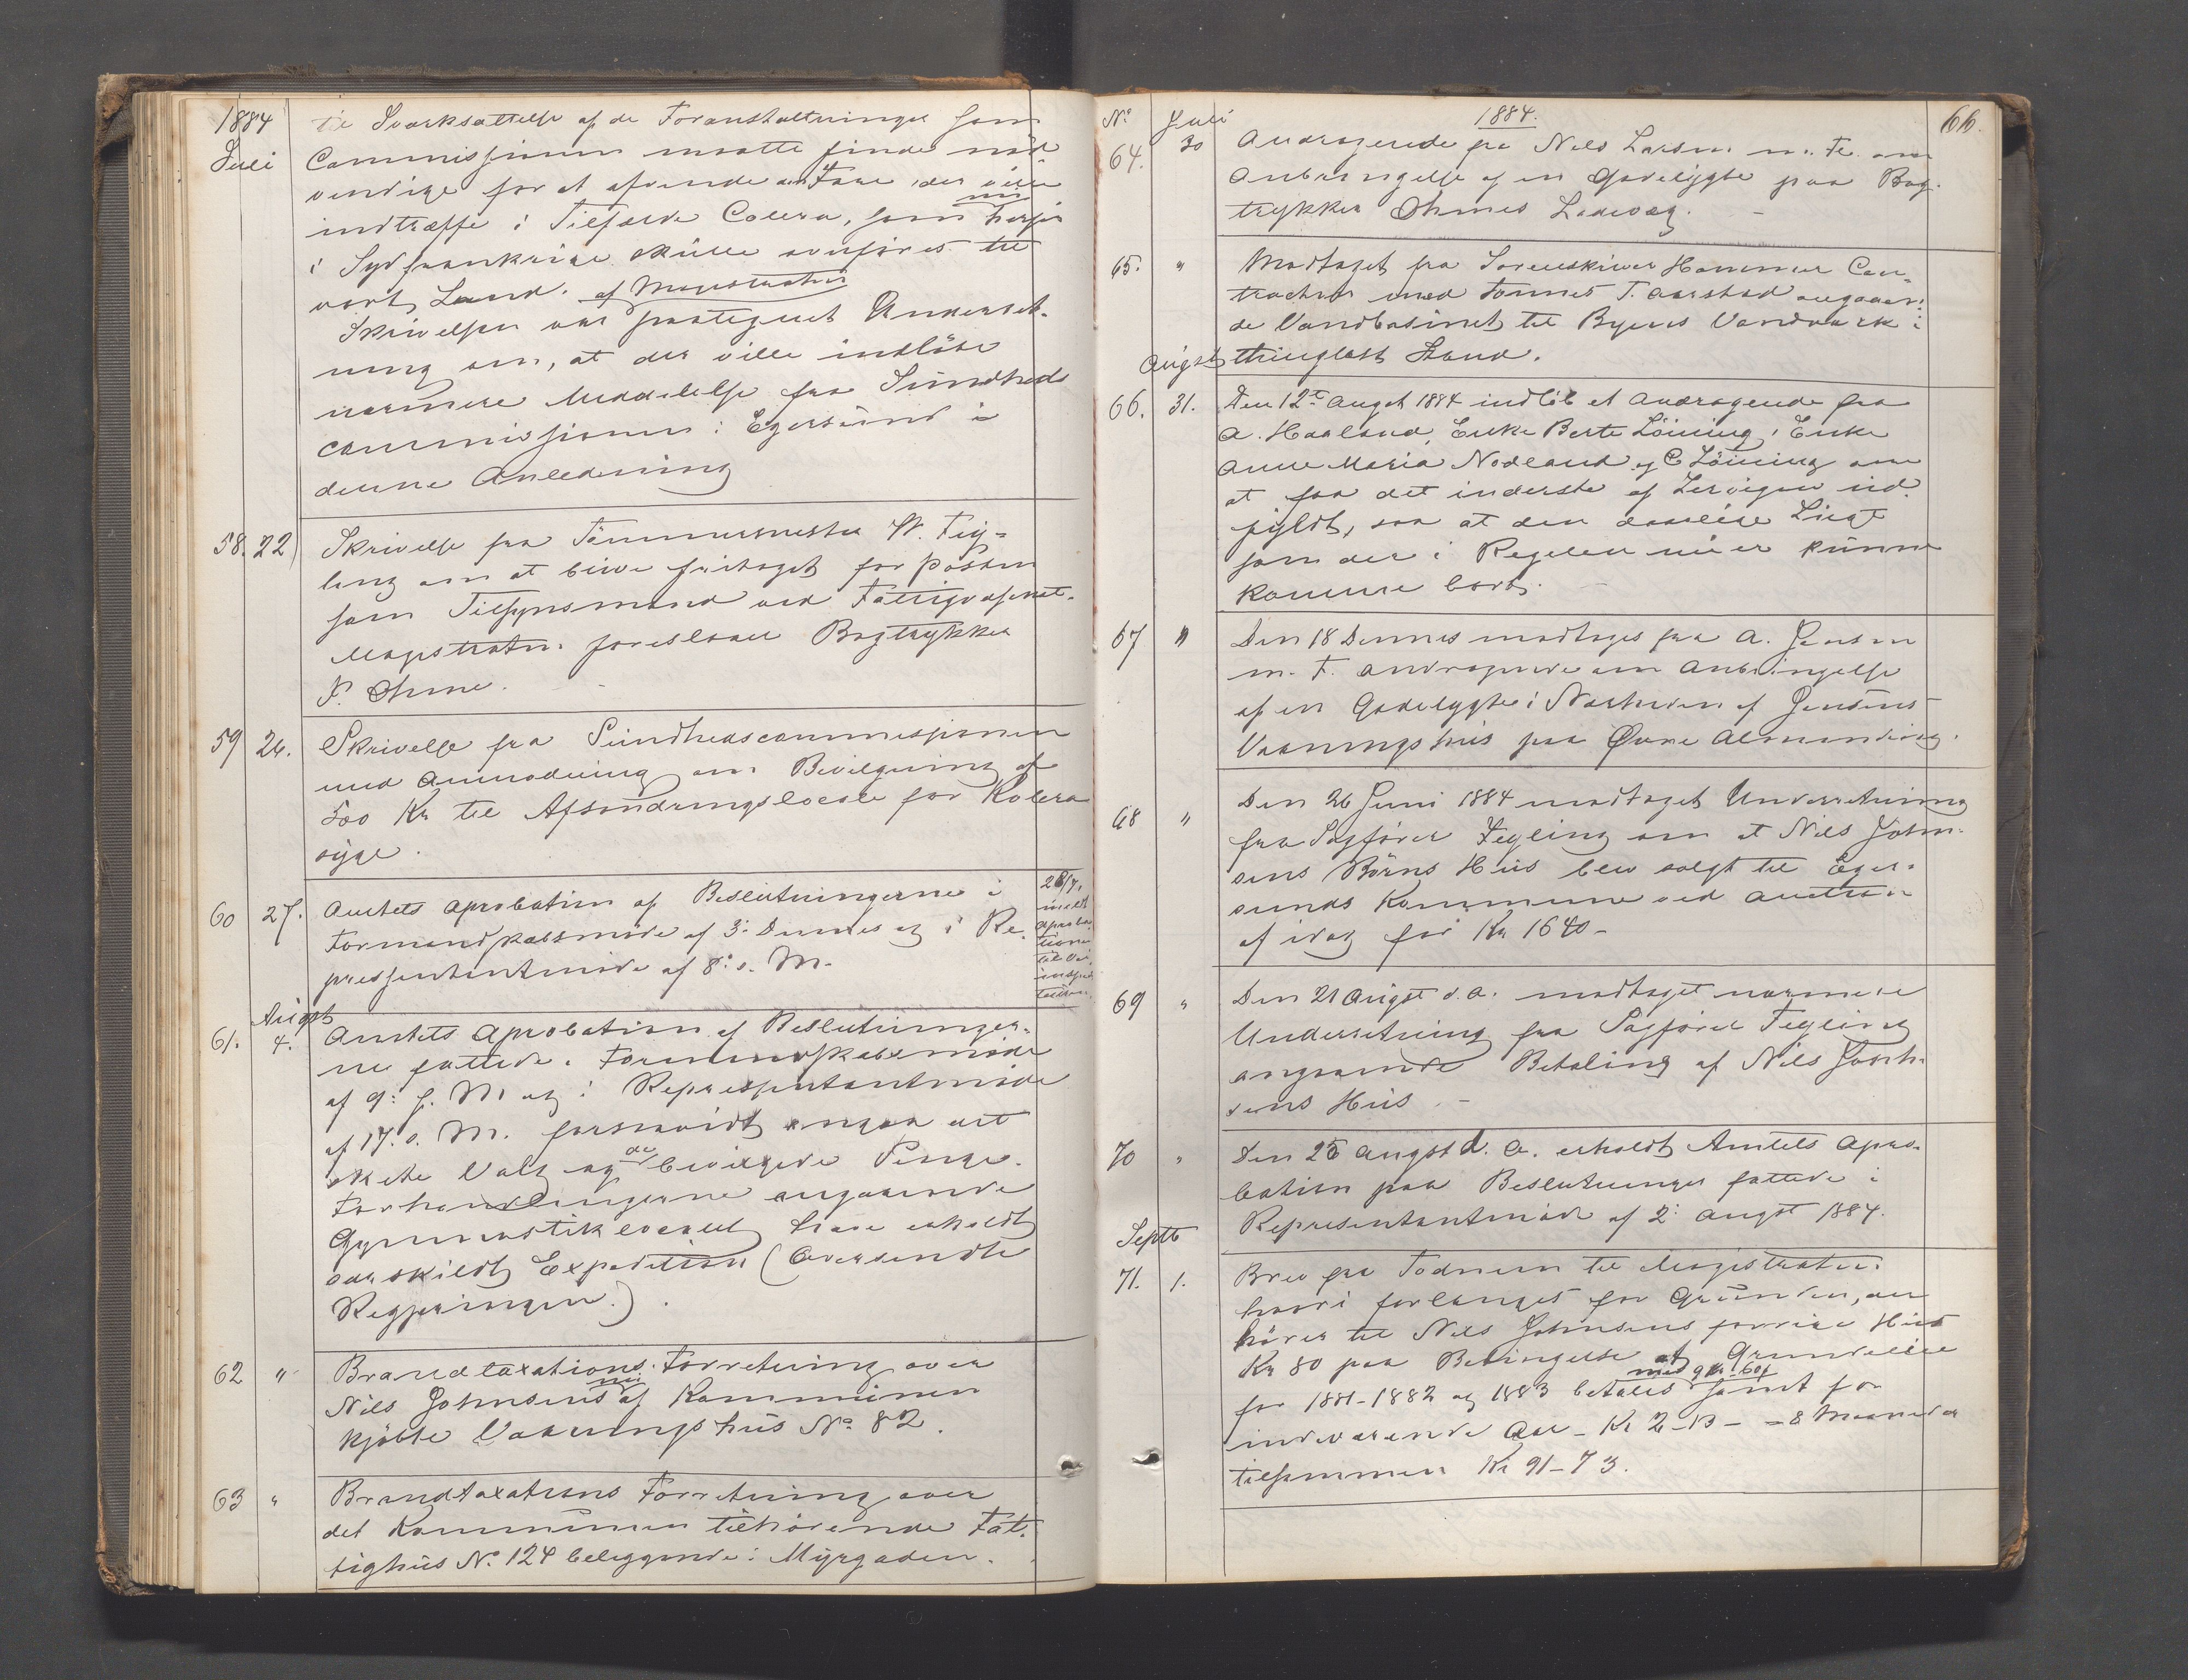 1884
Juli
til Iværksættelse af de Foranstaltninger som
Commissionen maatte finde nöd-
vendige for at afvende den Fare, der ville
indtræffe i Tilfælde Colera, som nu herjer
i Sydfrankrige skulle overføres til
vort Land.
Skrivelsen var af Magistraten paategnet Underret-
ning om, at der ville indløbe
nærmere Meddelelse fra Sundheds
commissionen i Egersund i
denne Anledning
58. 22 Skrivelse fra Tömmermester W. Feyl-
ling om at blive fritaget for Posten
som Tilsynsmand ved Fattigvæsenet.
Magistraten foreslaaer Bogtrykker
F. Ohme.
59 26. Skrivelse fra Sundhedscommissionen
med Anmodning om Bevilgning af
500 Kr til Afsondringslocale for Kolera
syge.
60 27. Amtets Aprobation af Beslutningerne i
Formandskabsmøde af 3: Dennes og i Re-
pressentantmøde af 8: s. M.
28/7.
meldt
Aproba-
tionen
til Vei
inspek
teuren.
August
61. 4. Amtets Aprobation af Beslutninger-
ne fattede i Formandskabsmøde
af 9: f. M og i Repressentantmøde
af 17. s. M. forsaavidt angaa det
skete Valg og de bevilgede Penge.
Forhandlingerne angaaende
Gymnastiklocalet have erholdt
særskildt Expedition (Oversendte
Regjeringen.)
62 " Brandtaxations Forretning over
Nils Johnsens nu af Kommunen
kjöbte Vaaningshus No 82.
63 " Brandtaxations Forretning over
det Kommunen tilhørende Fat-
tighus No. 124 beliggende i Myrgaden.
No Juli 1884. 66.
64. 30 Andragende fra Nils Larsen m. Fl. om
Anbringelse af en Gadelygte paa Bog-
trykker Ohmes Ladevæg.
65. " Modtaget fra Sorenskriver Hammer Con-
tracten med Tønnes T. Aarstad angaaen-
de Vandbasinet til Byens Vandværk i
thinglæst Stand.
August
66. 31. Den 12te Augst 1884 indlöb et Andragende fra
A. Haaland, Enke Berte Löining, Enke
Anne Maria Nodland og C Löining om
at faa det inderste af Lervigen ud-
fyldt, saa at den daarlige Lugt
som der i Regelen nu er kunne
komme bort.
67 " Den 18 Dennes modtoges fra A. Jensen
m. F. Andragende om Anbringelse
af en Gadelygte i Nærheden af Jensens
Vaaningshus paa Øvre Almending.
68 " Den 26 Juni 1884 modtaget Underretning
fra Sagfører Feyling om at Nils John-
sens Börns Hus blev solgt til Eger-
sunds Kommune ved Auction
af idag for Kr 1640 -
69 " Den 21 August d. A. modtaget nærmere
Underretning fra Sagförer Feyling
angaaende Betaling af Nils John-
sens Hus. -
70 " Den 25 Augst d. A. erholdt Amtets Apro-
bation paa Beslutninger fattede i
Representantmøde af 2: Augst 1884.
Septb
71. 1. Brev fra Todnem til Magistraten
hvori forlanges for Grunden, der
hörer til Nils Johnsens forrige Hus
Kr 80 paa Betingelse at Grundleie
for 1881-1882 og 1883 betales med 9 Kr. 60 samt for
indeværende Aar - Kr 2-13 - = 8 Maaneder
tilsammen Kr 91-73.